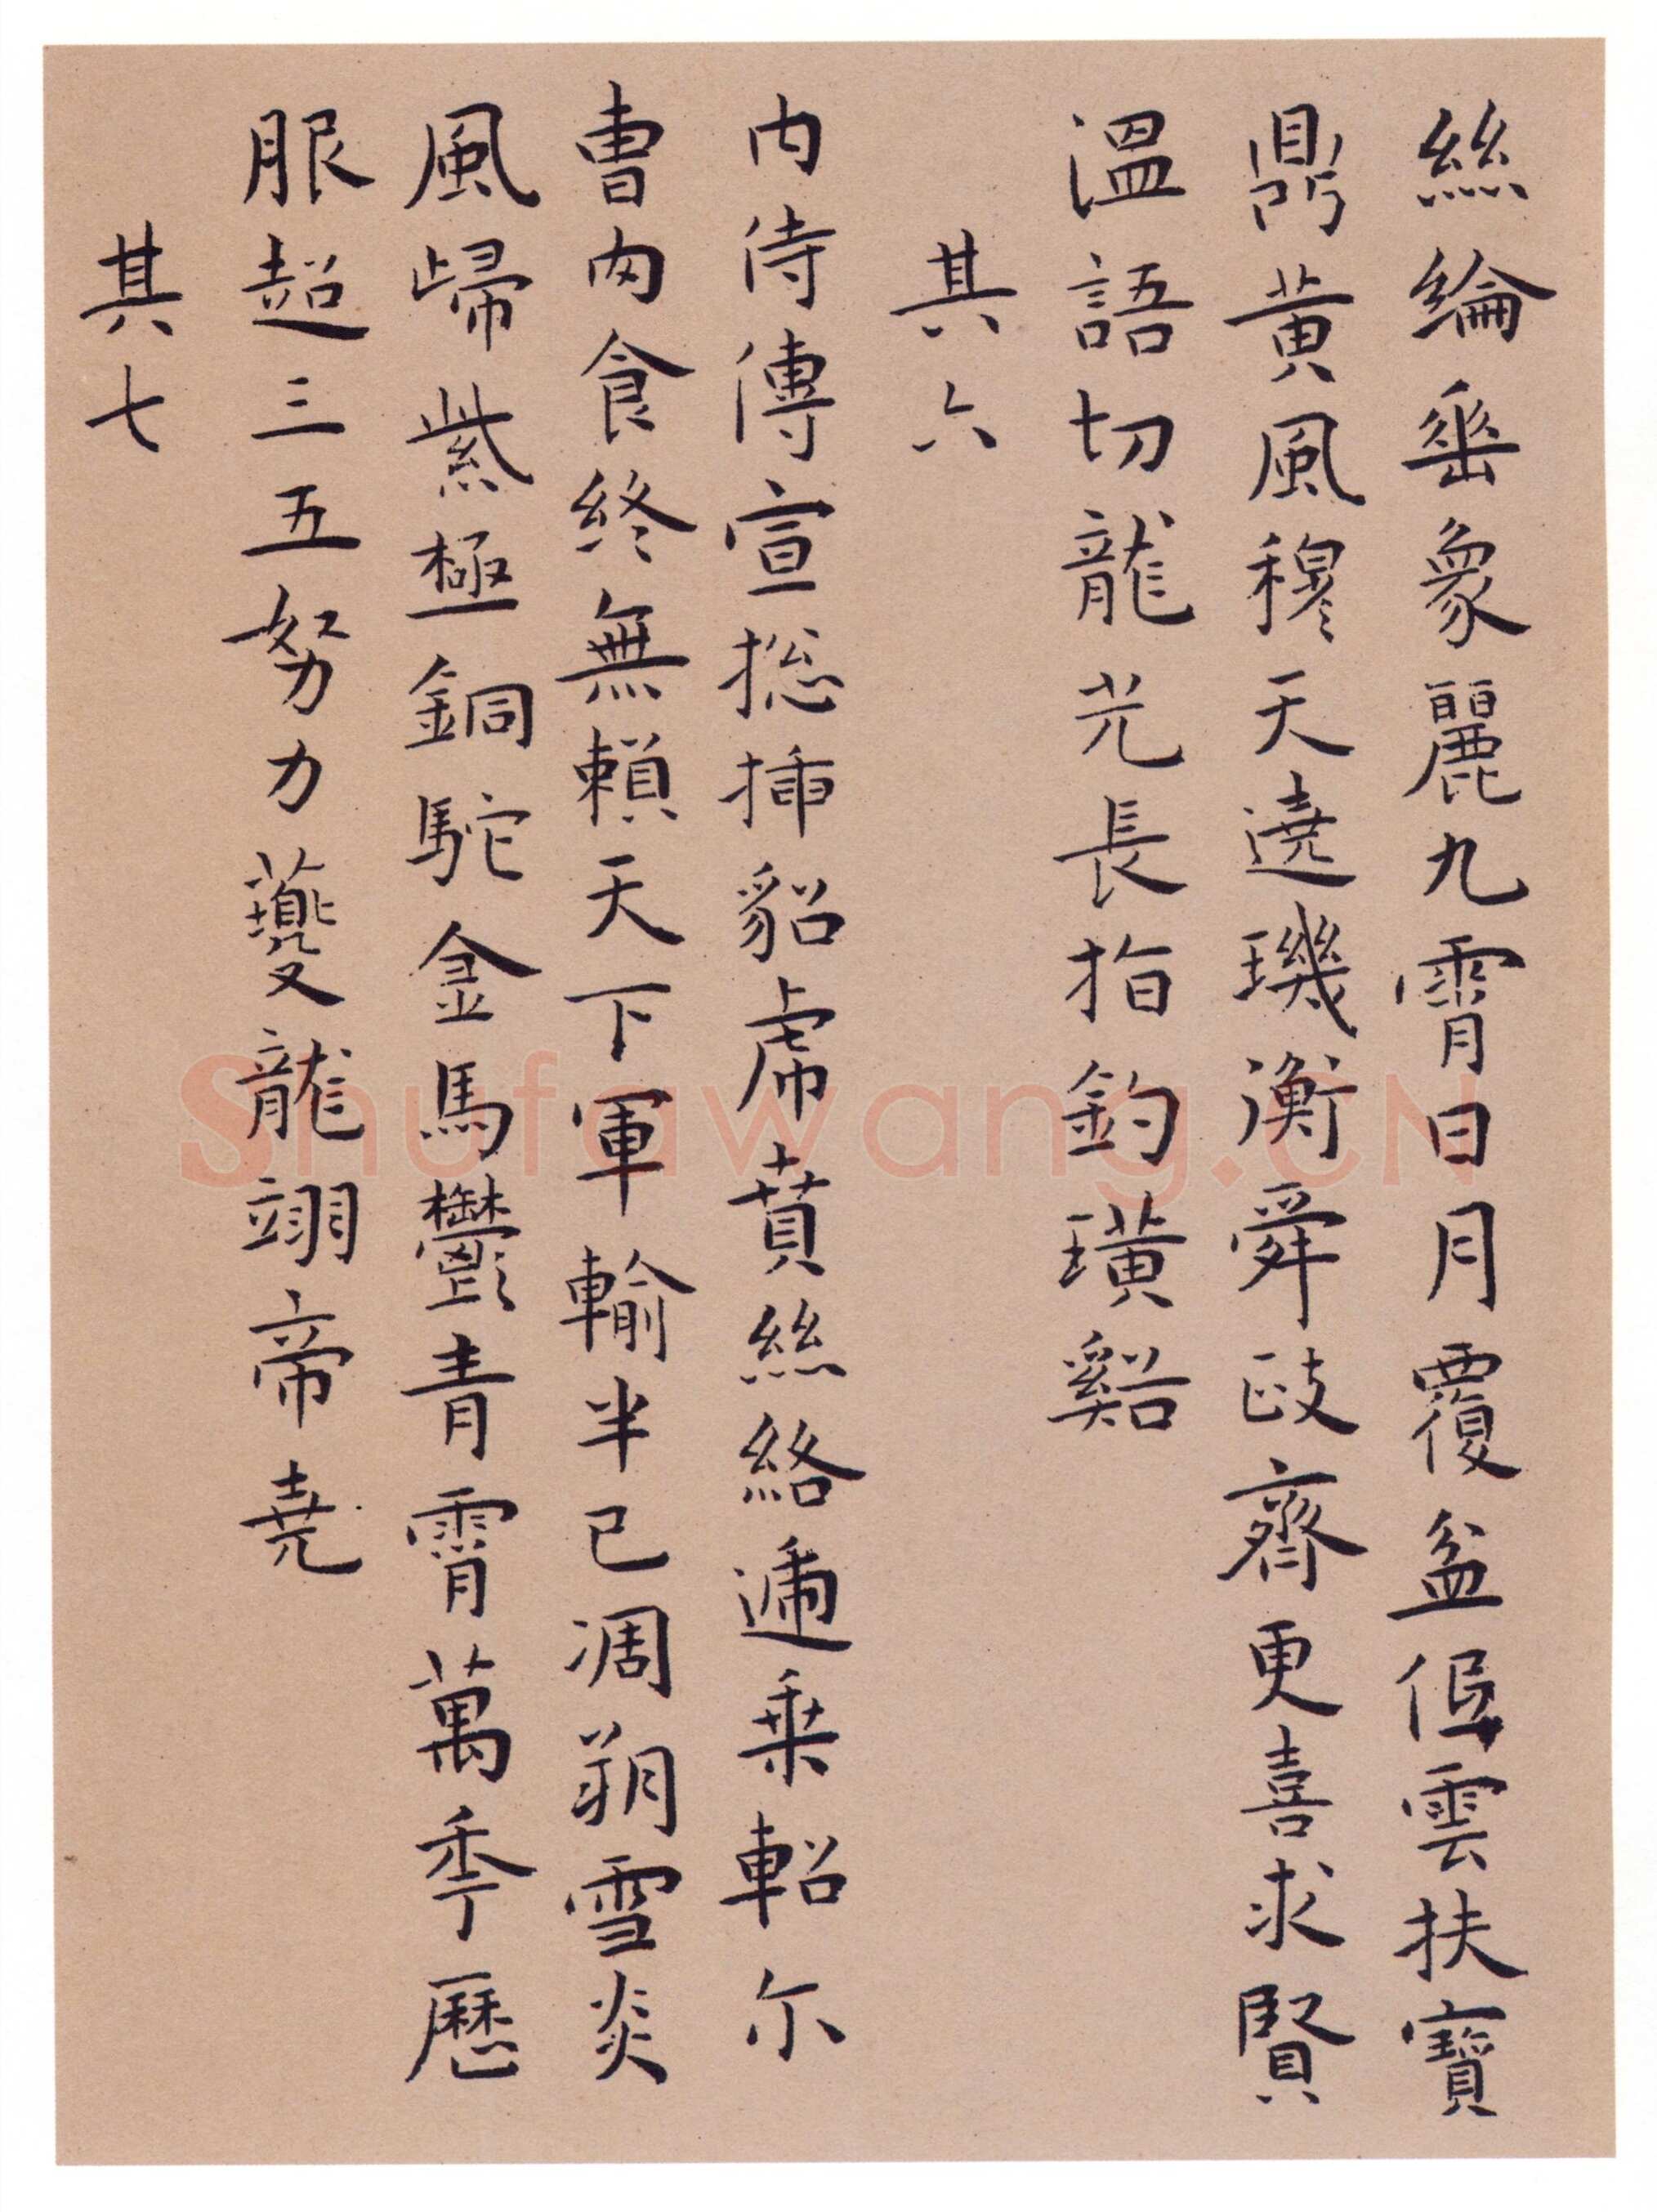 絲綸垂象麗九霄日月覆盆低雲扶寶
鼎黃風穆天遶璣衡舜政齊更喜求賢
溫語切龍光長指釣璜谿
其六
內侍傳宣捴揷貂虎賁絲絡遞乗軺尓
曹肉食終無賴天下軍輸半已凋朔雪炎
風歸紫極銅駝金馬鬱青霄萬秊曆
服超三五努力夔龍翊帝堯
其七
Shufawang.CN